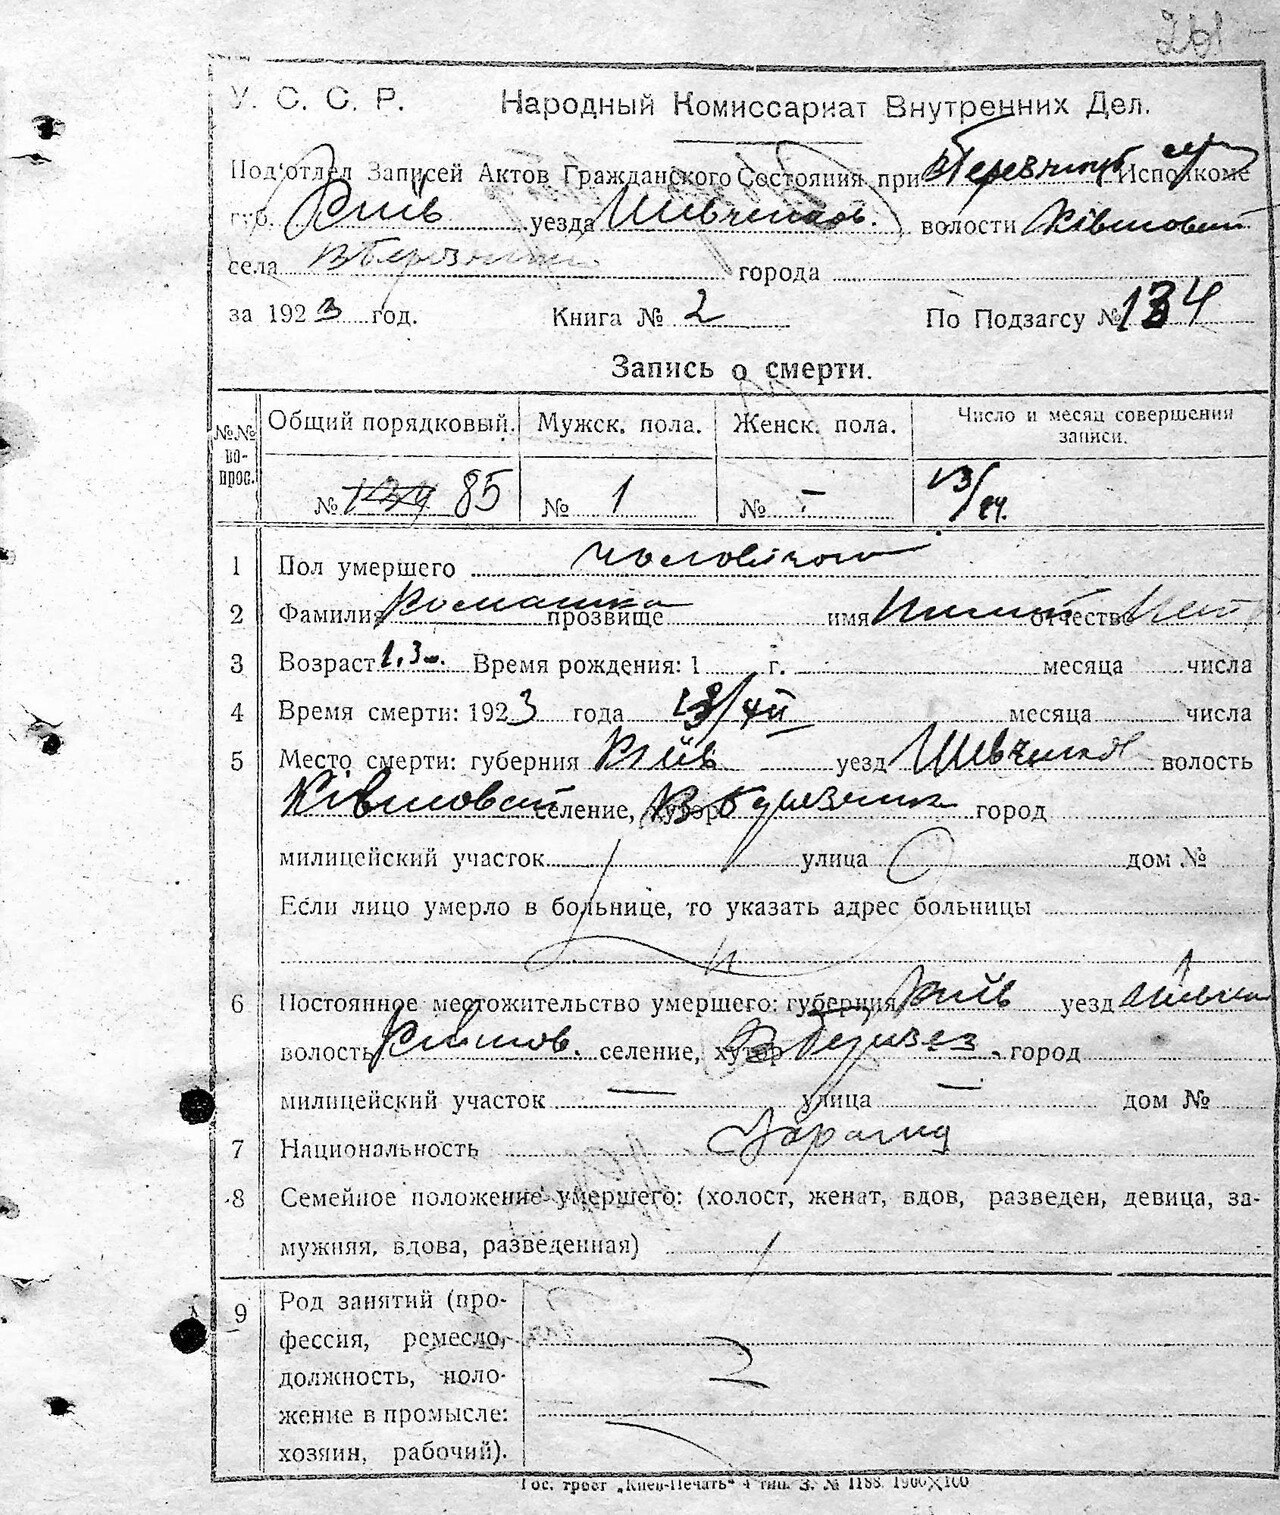 261
У. С. С. Р. Народный Комиссариат Внутренних Дел.
Под'отдел Записей Актов Гражданского Состояния при Исполкоме
губ. Київ уезда Шевченков. волости Ківшоват
села В березни города
за 1923 год. Книга № 2 По Подзагсу № 134
Запись о смерти.
№№ во-прос. Общий порядковый. Мужск. пола. Женск. пола. Число и месяц совершения записи.
№ 134 85 № 1 № - 13/
1 Пол умершего чоловічого
2 Фамилия Ромашка прозвище имя отчество
3 Возраст Время рождения: 1 г. месяца числа
4 Время смерти: 1923 года месяца числа
5 Место смерти: губерния Київ уезд Шевченков волость
Ківшоват селение, хутор город
милицейский участок улица дом №
Если лицо умерло в больнице, то указать адрес больницы
6 Постоянное местожительство умершего: губерния Київ уезд
волость Ківшов. селение, хутор город
милицейский участок — улица — дом №
7 Национальность
8 Семейное положение умершего: (холост, женат, вдов, разведен, девица, за-
мужняя, вдова, разведенная)
9 Род занятий (про-
фессия, ремесло,
должность, поло-
жение в промысле:
хозяин, рабочий).
Гос. трест „Киев-Печать“ 4 тип. З. № 1188. 1900×100